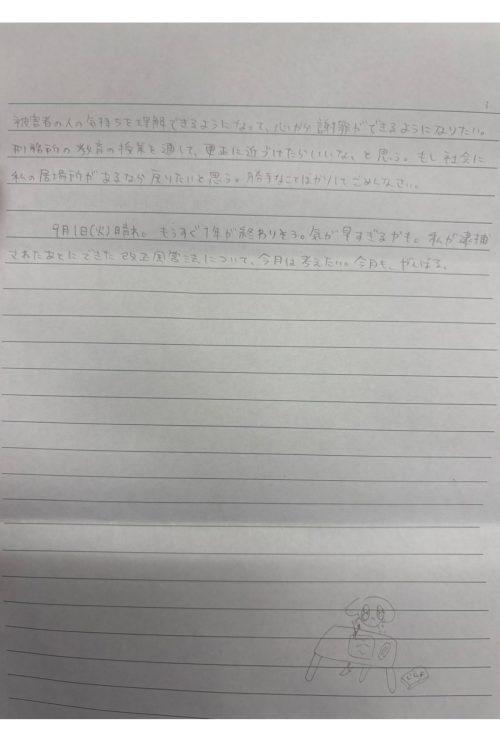 被害者の人の気持ちを理解できるようになって、心から謝罪ができるようになりたい。
刑務所の教育の授業を通して、更正に近づけたらいいな、と思う。もし社会に
私の居場所があるなら戻りたいと思う。勝手なことばかりしてごめんなさい。
9月1日(火)晴れ。もうすぐ1年が終わりそう。気が早すぎるかも。私が逮捕
されたあとにできた改正風営法について、今月は考えたい。今月も、がんばる。